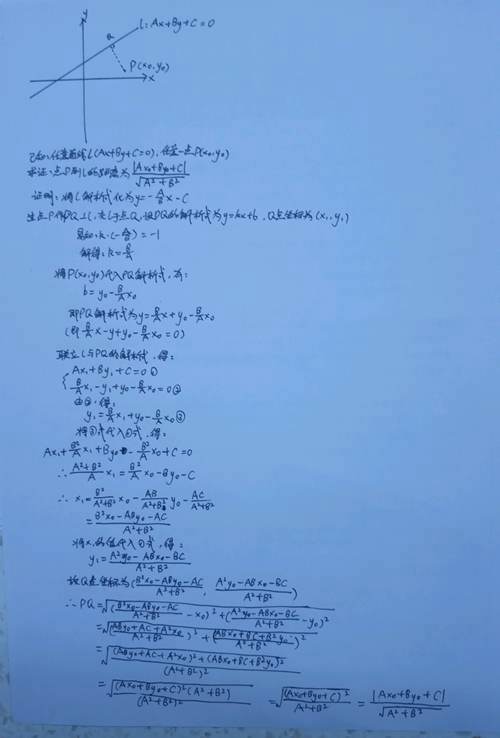 y
l: Ax+By+C=0
Q
P(x₀,y₀)
x
已知:任意直线l(Ax+By+C=0),任意一点P(x₀,y₀)
求证:点P到l的距离为|Ax₀+By₀+C|/√(A²+B²)
证明:将l解析式化为y=-A/B x-C
过点P作PQ⊥l,交l于点Q,设PQ的解析式为y=kx+b,Q点坐标为(x₁,y₁)
易知:k·(-A/B)=-1
解得:k=B/A
将P(x₀,y₀)代入PQ解析式,有:
b=y₀-B/A x₀
即PQ解析式为y=B/A x+y₀-B/A x₀
(即B/A x-y+y₀-B/A x₀=0)
联立l与PQ的解析式,得:
{Ax₁+By₁+C=0①
B/A x₁-y₁+y₀-B/A x₀=0②
由②,得:
y₁=B/A x₁+y₀-B/A x₀③
将③式代入①式,得:
Ax₁+B²/A x₁+By₀-B²/A x₀+C=0
∴ (A²+B²)/A x₁=B²/A x₀-By₀-C
∴ x₁=B²/(A²+B²) x₀-AB/(A²+B²) y₀-AC/(A²+B²)
=(B²x₀-ABy₀-AC)/(A²+B²)
将x₁的值代入①式,得:
y₁=(A²y₀-ABx₀-BC)/(A²+B²)
故Q点坐标为((B²x₀-ABy₀-AC)/(A²+B²), (A²y₀-ABx₀-BC)/(A²+B²))
∴ PQ=√(((B²x₀-ABy₀-AC)/(A²+B²)-x₀)²+((A²y₀-ABx₀-BC)/(A²+B²)-y₀)²)
=√(((ABy₀+AC+A²x₀)/(A²+B²))²+((ABx₀+BC+B²y₀)/(A²+B²))²)
=√(((ABy₀+AC+A²x₀)²+(ABx₀+BC+B²y₀)²)/(A²+B²)²)
=√((Ax₀+By₀+C)²(A²+B²)/(A²+B²)²) =√((Ax₀+By₀+C)²/(A²+B²)) =|Ax₀+By₀+C|/√(A²+B²)